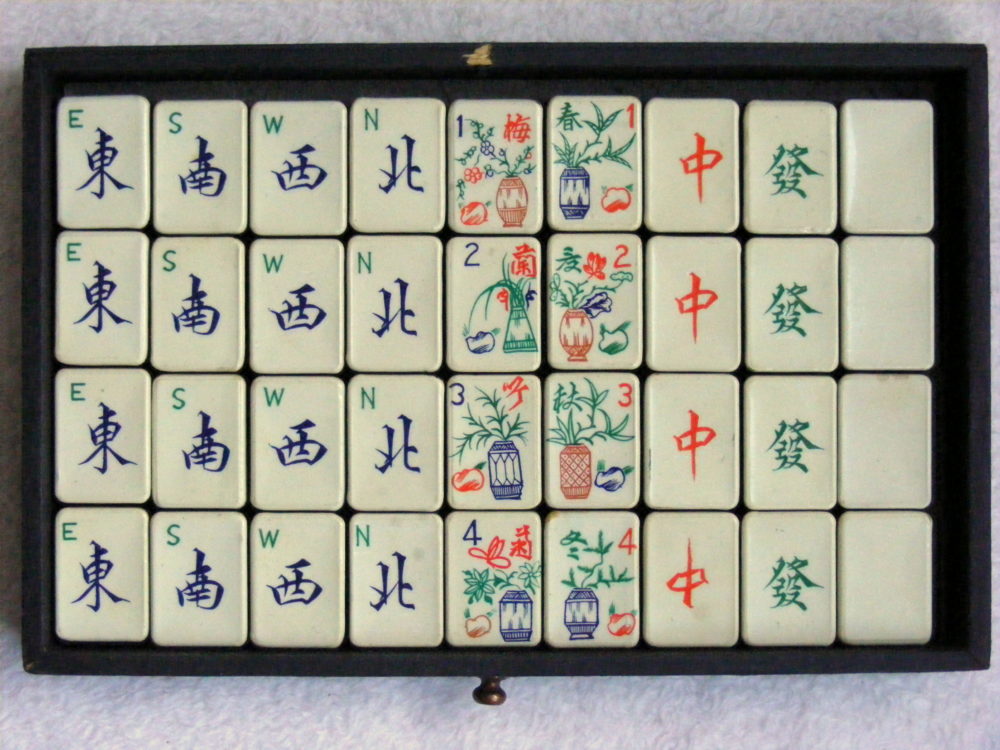 E 東 S 南 W 西 N 北 1 梅 春 1 中 發
E 東 S 南 W 西 N 北 2 蘭 夏 2 中 發
E 東 S 南 W 西 N 北 3 竹 秋 3 中 發
E 東 S 南 W 西 N 北 4 菊 冬 4 中 發